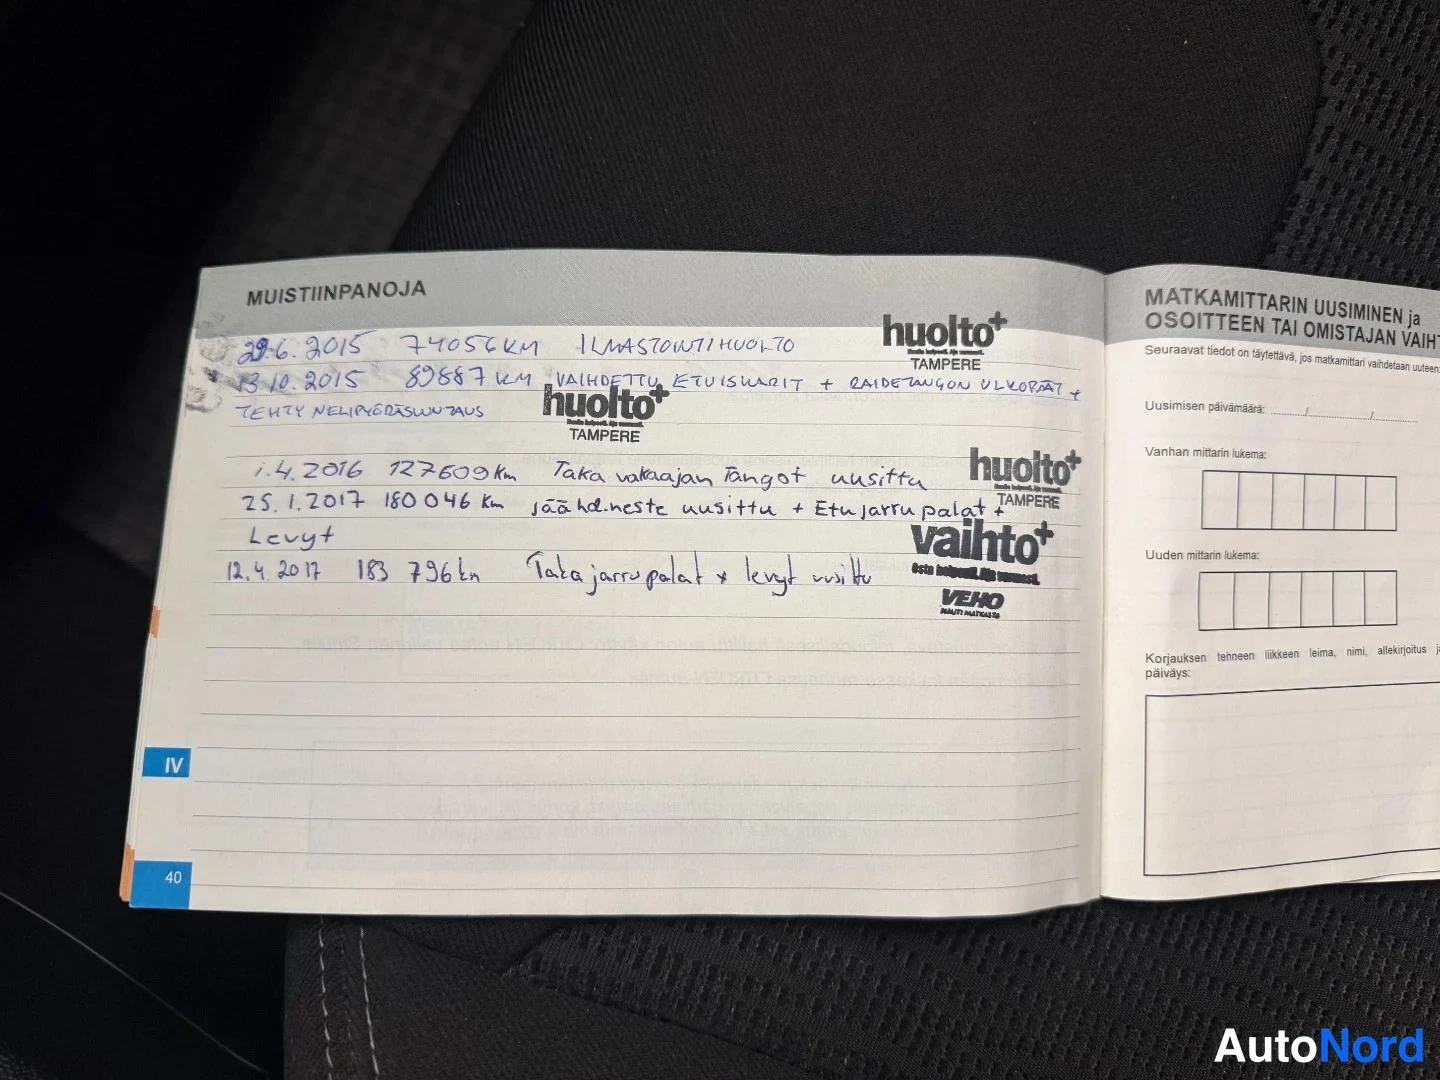 MUISTIINPANOJA
29.6.2015 74056KM ILMASTOINTIHUOLTO
huolto+
TAMPERE
13.10.2015 89887 KM VAIHDETTU ETUISKARIT + RAIDETANGON ULKOPÄÄT +
TEHTY NELIPYÖRÄSUUNTAUS
huolto+
Huolla helposti. Aja varmasti.
TAMPERE
1.4.2016 127609km Taka vakaajan Tangot uusittu
huolto+
TAMPERE
25.1.2017 180046 km jäähd.neste uusittu + Etujarrupalat +
Levyt
vaihto+
Osta helposti. Aja varmasti.
VEHO
12.4.2017 183 796km Taka jarrupalat x levyt uusittu
IV
40
MATKAMITTARIN UUSIMINEN ja
OSOITTEEN TAI OMISTAJAN VAIHT
Seuraavat tiedot on täytettävä, jos matkamittari vaihdetaan uuteen:
Uusimisen päivämäärä: ......../................/............
Vanhan mittarin lukema:
Uuden mittarin lukema:
Korjauksen tehneen liikkeen leima, nimi, allekirjoitus
päiväys:
AutoNord